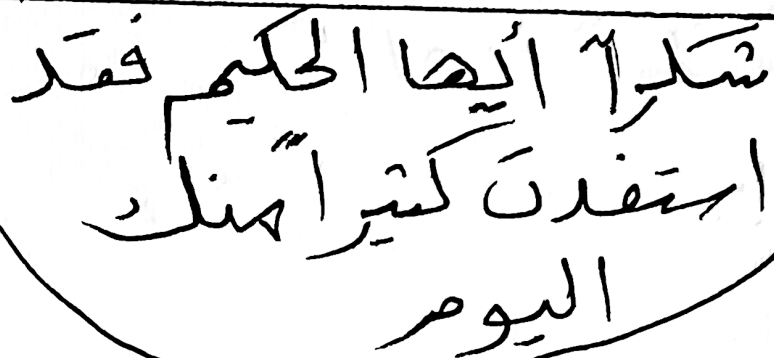 شكراً أيها الحكيم فقد
استفدت كثيراً منك
اليوم